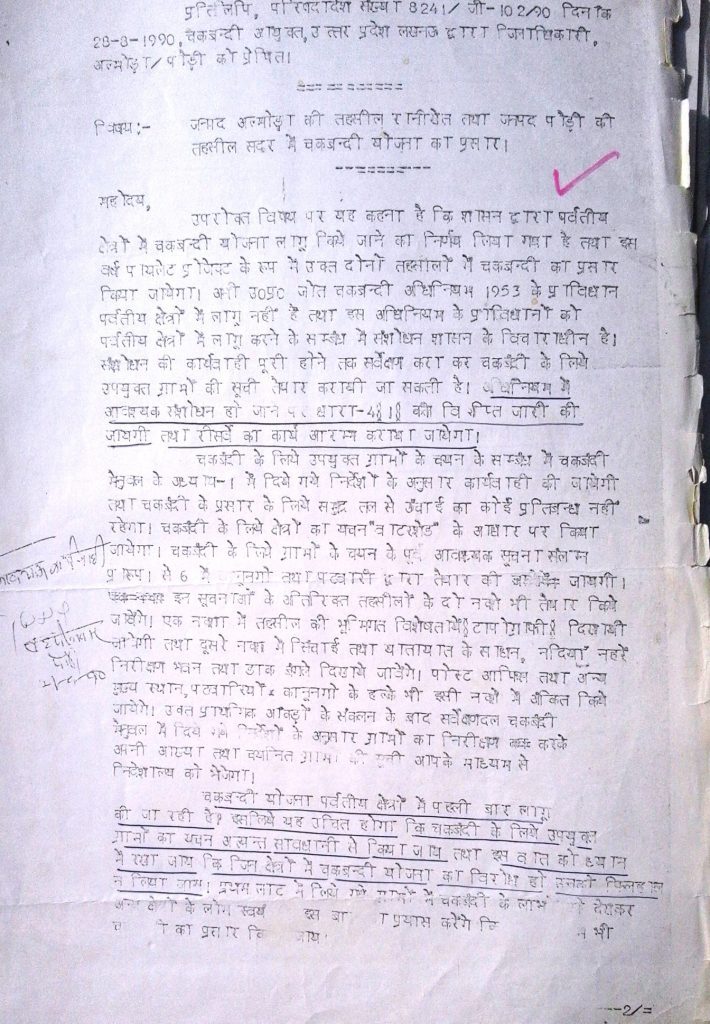 प्रतिलिपि, परिषदादेश संख्या 8241/ जी-102/90 दिनांक
28-8-1990, चकबन्दी आयुक्त, उत्तर प्रदेश लखनऊ द्वारा जिलाधिकारी,
अल्मोड़ा/ पौड़ी को प्रेषित।
विषय:- जनपद अल्मोड़ा की तहसील रानीखेत तथा जनपद पौड़ी की
तहसील सदर में चकबन्दी योजना का प्रसार।
महोदय,
उपरोक्त विषय पर यह कहना है कि शासन द्वारा पर्वतीय
क्षेत्रों में चकबन्दी योजना लागू किये जाने का निर्णय लिया गया है तथा इस
वर्ष पायलेट प्रोजेक्ट के रूप में उक्त दोनों तहसीलों में चकबन्दी का प्रसार
किया जायेगा। अभी उ0प्र0 जोत चकबन्दी अधिनियम 1953 के प्राविधान
पर्वतीय क्षेत्रों में लागू नहीं है तथा इस अधिनियम के प्राविधानों को
पर्वतीय क्षेत्रों में लागू करने के सम्बन्ध में संशोधन शासन के विचाराधीन है।
संशोधन की कार्यवाही पूरी होने तक सर्वेक्षण करा कर चकबंदी के लिये
उपयुक्त ग्रामों की सूची तैयार करायी जा सकती है। अधिनियम में
आवश्यक संशोधन हो जाने पर धारा-4§1§ की विज्ञप्ति जारी की
जायगी तथा रीसर्वे का कार्य आरम्भ कराया जायेगा।
चकबंदी के लिये उपयुक्त ग्रामों के चयन के सम्बन्ध में चकबंदी
मैनुवल के अध्याय-1 में दिये गये निर्देशों के अनुसार कार्यवाही की जायेगी
तथा चकबंदी के प्रसार के लिये समुद्र तल से उंचाई का कोई प्रतिबन्ध नहीं
रहेगा। चकबंदी के लिये क्षेत्रों का चयन "वाटरशेड" के आधार पर किया
जायेगा। चकबंदी के लिये ग्रामों के चयन के पूर्व आवश्यक सूचना संलग्न
प्रारूप 1 से 6 में कानूनगो तथा पटवारी द्वारा तैयार की जायगी।
इन सूचनाओं के अतिरिक्त तहसीलों के दो नक्शे भी तैयार किये
जायेंगे। एक नक्शा में तहसील की भूमिगत विशेषतायें§टापोग्राफी§ दिखायी
जायेगी तथा दूसरे नक्शा में सिंचाई तथा यातायात के साधन, नदियां नहरें
निरीक्षण भवन तथा डाक बंगले दिखाये जायेंगे। पोस्ट आफिस तथा अन्य
मुख्य स्थान, पटवारियों कानुनगो के हल्के भी इसी नक्शे में अंकित किये
जायेंगे। उक्त प्राथमिक आंकड़ों के संकलन के बाद सर्वेक्षणदल चकबंदी
मैनुवल में दिये गये निर्देशों के अनुसार ग्रामों का निरीक्षण करके
अपनी आख्या तथा चयनित ग्रामों की सूची आपके माध्यम से
निदेशालय को भेजेगा।
चकबन्दी योजना पर्वतीय क्षेत्रों में पहली बार लागू
की जा रही है। इसलिये यह उचित होगा कि चकबंदी के लिये उपयुक्त
ग्रामों का चयन अत्यन्त सावधानी से किया जाय तथा इस बात को ध्यान
में रखा जाय कि जिन क्षेत्रों में चकबन्दी योजना का विरोध हो उनको फिलहाल
न लिया जाय। प्रथम लाट में लिये गये ग्रामों में चकबंदी के लाभ देखकर
अन्य क्षेत्रों के लोग स्वयं इस प्रयास करेंगे
का प्रसार जाय भी
---2/=